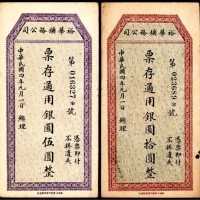 裕華礦務公司
第0116327號
票存通用銀圓伍圓整
憑票即付
不掛遺失
中華民國四年九月一日 總理
裕華礦務公司
第號
票存通用銀圓拾圓整
憑票即付
不掛遺失
中華民國四年九月一日 總理